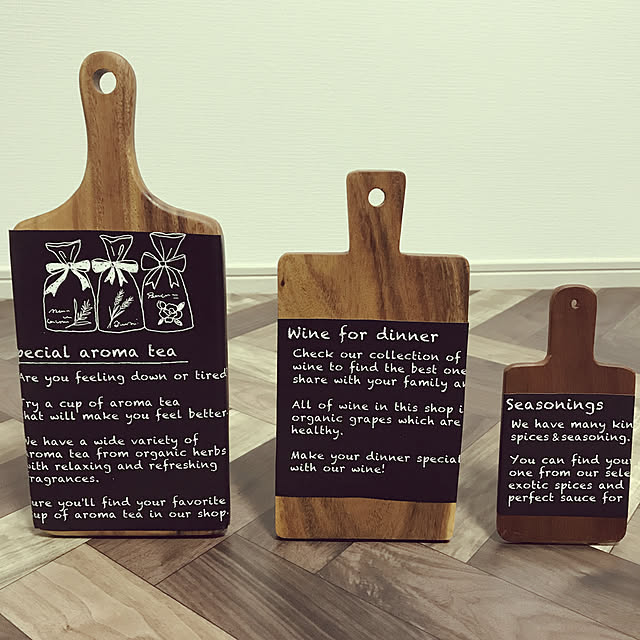 pecial aroma tea
Are you feeling down or tired
Try a cup of aroma tea
that will make you feel better
We have a wide variety of
aroma tea from organic herbs
with relaxing and refreshing
fragrances.
ure you'll find your favorite
cup of aroma tea in our shop.
Wine for dinner
Check our collection of
wine to find the best one
share with your family a
All of wine in this shop i
organic grapes which are
healthy.
Make your dinner special
with our wine!
Seasonings
We have many kin
spices & seasoning.
You can find you
one from our sele
exotic spices and
perfect sauce for